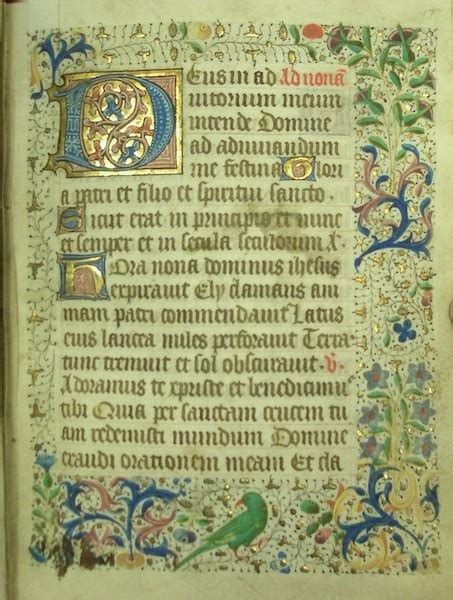 Deus in ad Ad nonā
iutorium meum
intende Domine
ad adiuvandum
me festina Glori
a patri et filio et spiritui sancto.
Sicut erat in principio et nunc
et semper et in secula seculorum
Hora nona dominus ihesus
expiravit Ely clamans ani
mam patri commendavit Latus
eius lancea miles perforavit Terra
tunc tremuit et sol obscuravit. v
Adoramus te xpriste et benedicimꝰ
tibi Quia per sanctam crucem tu
am redemisti mundum Domine
exaudi orationem meam Et cla